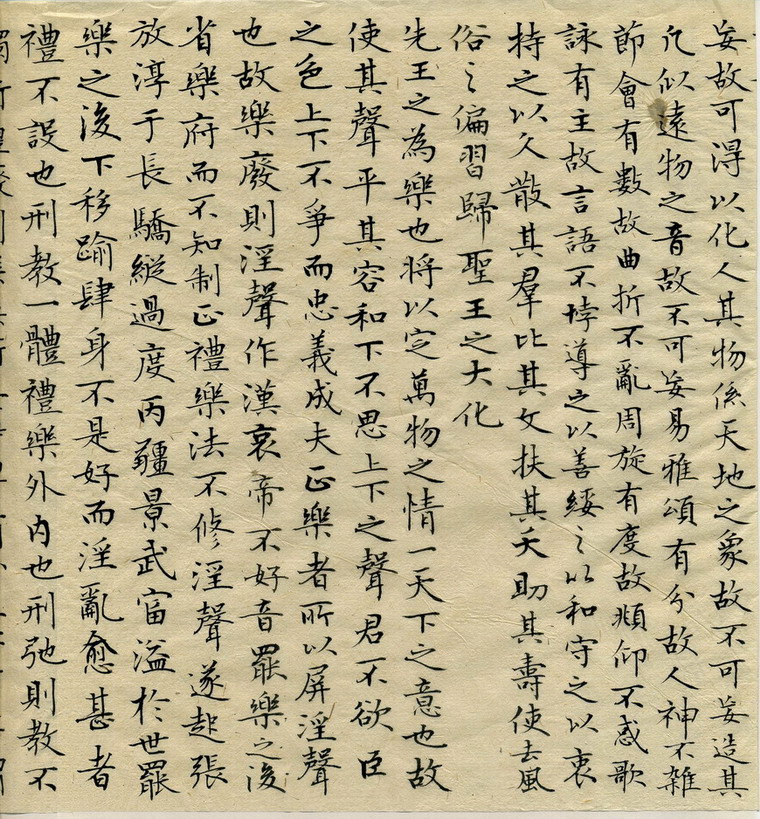 妄故可得以化人其物係天地之象故不可妄造其
凡似遠物之音故不可妄易雅頌有分故人神不雜
節會有數故曲折不亂周旋有度故頫仰不惑歌
詠有主故言語不悖導之以善綏之以和守之以衷
持之以久散其羣比其文扶其夭助其壽使去風
俗之偏習歸聖王之大化
先王之為樂也將以定萬物之情一天下之意也故
使其聲平其容和下不思上下之聲君不欲臣
之色上下不爭而忠義成夫正樂者所以屏淫聲
也故樂廢則淫聲作漢哀帝不好音罷樂之後
省樂府而不知制正禮樂法不修淫聲遂起張
放淳于長驕縱過度丙疆景武富溢於世罷
樂之後下移踰肆身不是好而淫亂愈甚者
禮不設也刑教一體禮樂外內也刑弛則教不